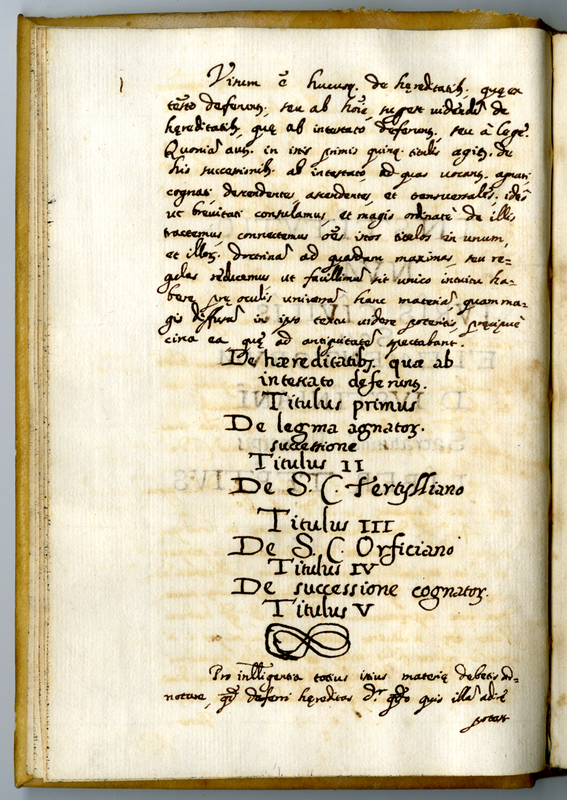 Visum ē hucusq. de hęreditatib. quę ex
testo deferunt, seu ab hoīe, super videndū de
hęreditatib, quę ab intestato deferunt, seu à lege.
Quoniā aut. in istis primis quinq. titulis agit. de
his successionib. ab intestato ad quas vocant. agnati
cognati descendentes, ascendentes, et transversales, ideò
ut brevitati consulamus, et magis ordinatè de illis
tractemus, connectemus oēs istos titulos in unum,
et illoꝝ. doctrinā ad quasdam maximas, seu re=
gulas reducemus ut facillimū sit unico intuitu ha=
bere prę oculis universā hanc materiā, quam ma=
gis diffusā in ipso textu videre poteritis, pręcipuè
circa ea quę ad antiquitatē spectabant.
De hæreditatibs. quæ ab
intestato deferunt.
Titulus primus
De legma agnatoꝝ.
successione
Titulus II
De S. C. Tertylliano
Titulus III
De S. C. Orficiano
Titulus IV
De successione cognatoꝝ.
Titulus V
Pro intelligentia totius istius materię debetis ad=
notare, qd deferri hęreditas dr. qdo quis illā adire
potest